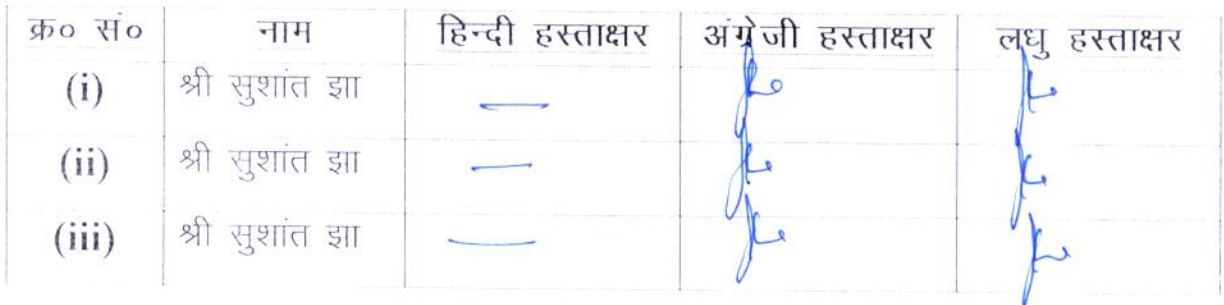 क्र० सं० नाम हिन्दी हस्ताक्षर अंग्रेजी हस्ताक्षर लधु हस्ताक्षर
(i) श्री सुशांत झा —
(ii) श्री सुशांत झा —
(iii) श्री सुशांत झा —